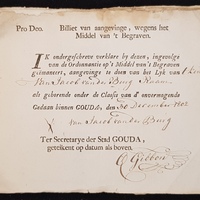 Pro Deo. Billet van aangevinge, wegens het
Middel van 't Begraven.
IK ondergeschreve verklare by dezen, ingevolge
van de Ordonnantie op 't Middel van 't Begraven
geëmaneert, aangevinge te doen van het Lyk van
Jacob van der Burg
als gehorende onder de Classis van d' onvermogende
Gedaan binnen GOUDA, den 30 December 1802
X
van Jacob van der Burg
Ter Secretarye der Stad GOUDA,
getekent op datum als boven.